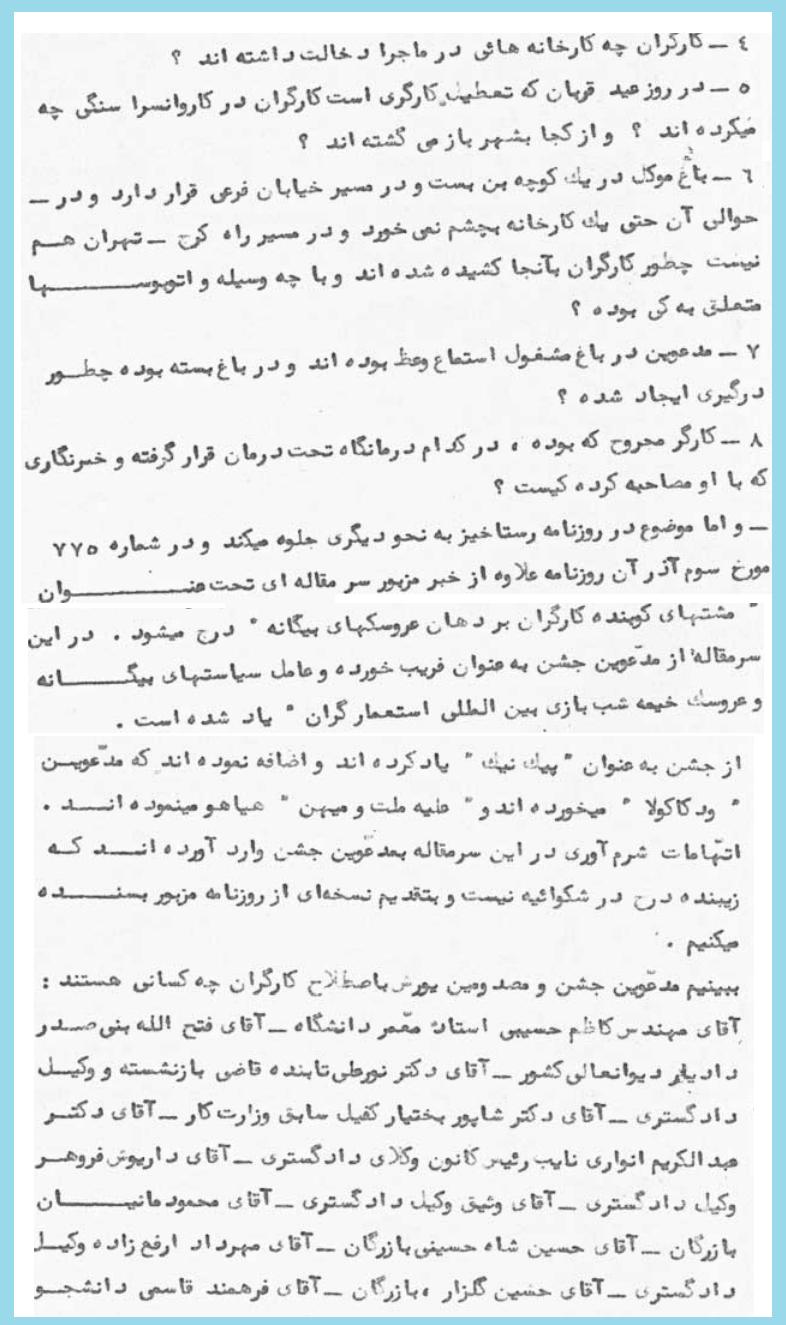 ٤ ــ کارگران چه کارخانه هائی در ماجرا دخالت داشته اند ؟
٥ ــ در روز عید قربان که تعطیل کارگری است کارگران در کاروانسرا سنگی چه
میکرده اند ؟ و از کجا بشهر باز می گشته اند ؟
٦ ــ باغ موکل در یك کوچه بن بست و در مسیر خیابان فرعی قرار دارد و در ــ
حوالی آن حتی یك کارخانه بچشم نمی خورد و در مسیر راه کرج ــ تهران هــم
نیست چطور کارگران بآنجا کشیده شده اند و با چه وسیله و اتوبوســـــــها
متعلق به کی بوده ؟
٧ ــ مدعوین در باغ مشغول استماع وعظ بوده اند و در باغ بسته بوده چطــور
درگیری ایجاد شده ؟
٨ ــ کارگر مجروح که بوده ، در کدام درمانگاه تحت درمان قرار گرفته و خبرنگاری
که با او مصاحبه کرده کیست ؟
ــ و اما موضوع در روزنامه رستاخیز به نحو دیگری جلوه میکند و در شماره ٧٧٥
مورخ سوم آذر آن روزنامه علاوه از خبر مزبور سر مقاله ای تحت عنـــــــــوان
" مشتهای کوبنده کارگران بر دهان عروسکهای بیگانه " درج میشود . در این
سرمقاله از مدعّوین جشن به عنوان فریب خورده و عامل سیاستهای بیگـــــانه
و عروسك خیمه شب بازی بین المللی استعمار گران " یاد شده است .
از جشن به عنوان " پیك نیك " یاد کرده اند و اضافه نموده اند که مدّعویــن
" ودکاکولا " میخورده اند و " علیه ملت و میهن " هیاهو مینموده انـــد .
اتّهامات شرم آوری در این سرمقاله بمدعّوین جشن وارد آورده انـــد کــه
زیبنده درج در شکوائیه نیست و بتقدیم نسخه‌ای از روزنامه مزبور بسنـــــده
میکنیم .
ببینیم مدعّوین جشن و مصدومین یورش باصطلاح کارگران چه کسانی هستند :
آقای مهندس کاظم حسیبی استاد معّمر دانشگاه ــ آقای فتح الله بنی صــدر
دادیار دیوانعالی کشور ــ آقای دکتر نورعلی تابنده قاضی بازنشسته و وکیــل
دادگستری ــ آقای دکتر شاپور بختیار کفیل سابق وزارت کار ــ آقای دکتــر
عبدالکریم انواری نایب رئیس کانون وکلای دادگستری ــ آقای داریوش فروهــر
وکیل دادگستری ــ آقای وثیق وکیل دادگستری ــ آقای محمود مانیـــــان
بازرگان ــ آقای حسین شاه حسینی بازرگان ــ آقای مهرداد ارفع زاده وکیــل
دادگستری ــ آقای حسین گلزار ، بازرگان ــ آقای فرهمند قاسمی دانشجــو